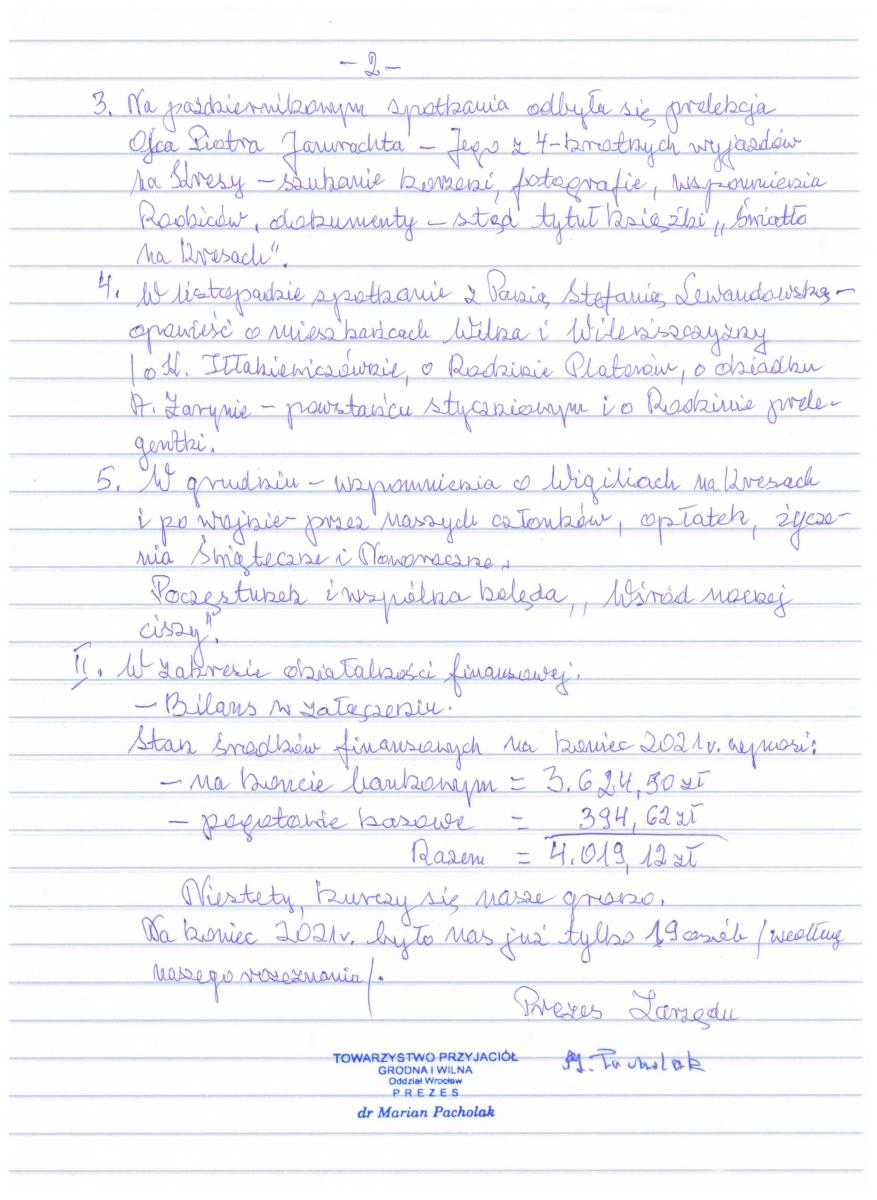 - 2 -
3. Na październikowym spotkania odbyła się prelekcja
Ojca Piotra - Jego z 4-krotnych wyjazdów
na Kresy - szukanie korzeni, fotografie, wspomnienia
Rodziców, dokumenty - stąd tytuł książki „Światło
na kresach".
4. W listopadzie spotkanie z Panią Stefanią Lewandowską -
opowieść o mieszkańcach Wilna i Wileńszczyzny
/ o K. Iłłakiewiczównie, o Rodzinie Platerów, o dziadku
A. Żarynie - powstańcu styczniowym i o Rodzinie prele-
gentki.
5. W grudniu - wspomnienia o Wigiliach na Kresach
i po wojnie przez naszych członków, opłatek, życze-
nia Świąteczne i Noworoczne.
Poczęstunek i wspólna kolęda „Wśród nocnej
ciszy".
II. W zakresie działalności finansowej.
- Bilans w załączeniu.
Stan środków finansowych na koniec 2021r. wynosi:
- na koncie bankowym = 3.624,50 zł
- pogotowie kasowe = 394,62 zł
Razem = 4.019,12 zł
Niestety, kurczy się nasze grono.
Na koniec 2021r. było nas już tylko 19 osób /według
naszego rozeznania/.
Prezes Zarządu
M. Pacholak
TOWARZYSTWO PRZYJACIÓŁ
GRODNA I WILNA
Oddział Wrocław
PREZES
dr Marian Pacholak